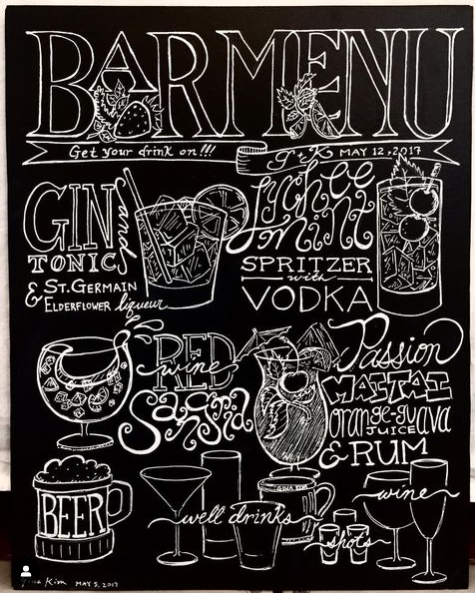 BAR MENU
Get your drink on!!!
J & K MAY 12, 2017
GIN and
TONIC
& ST. GERMAIN
ELDERFLOWER liqueur
Lychee
mint
SPRITZER
with
VODKA
RED
wine
Sangria
Passion
MAI TAI
orange-guava
JUICE
& RUM
BEER
well drinks
shots
wine
Kim MAY 5, 2017